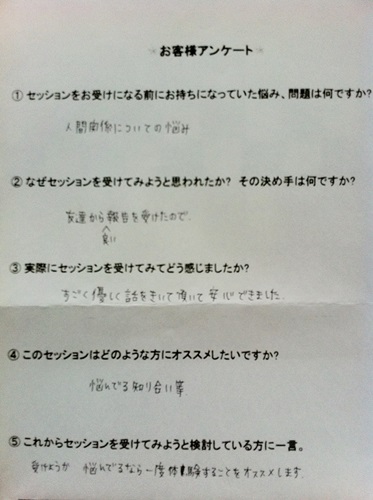 お客様アンケート
① セッションをお受けになる前にお持ちになっていた悩み、問題は何ですか?
人間関係についての悩み
② なぜセッションを受けてみようと思われたか? その決め手は何ですか?
友達から報告を受けたので、
良い
③ 実際にセッションを受けてみてどう感じましたか?
すごく優しく話をきいて頂いて安心できました。
④ このセッションはどのような方にオススメしたいですか?
悩んでる知り合い等
⑤ これからセッションを受けてみようと検討している方に一言。
受けようか 悩んでるなら一度体験することをオススメします。